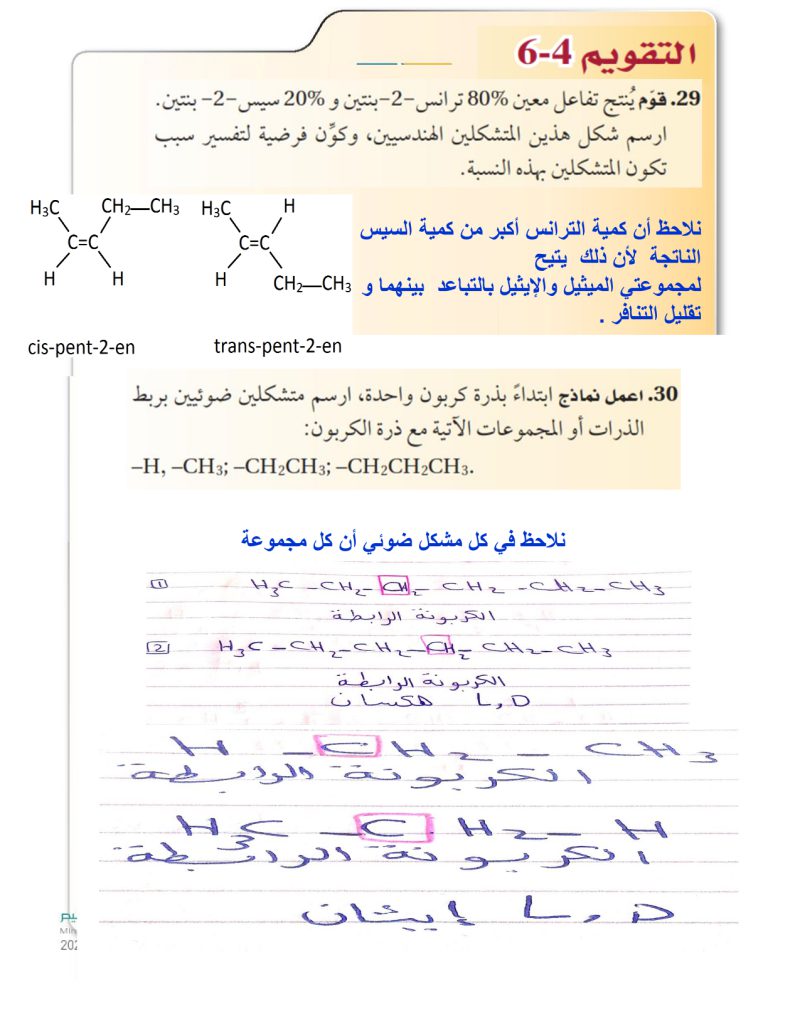 التقويم 4-6
29. قوّم يُنتج تفاعل معين %80 ترانس-2-بنتين و %20 سيس-2- بنتين.
ارسم شكل هذين المتشكلين الهندسيين، وكوِّن فرضية لتفسير سبب
تكون المتشكلين بهذه النسبة.
نلاحظ أن كمية الترانس أكبر من كمية السيس
الناتجة لأن ذلك يتيح
لمجموعتي الميثيل والإيثيل بالتباعد بينهما و
تقليل التنافر .
H₃C CH₂—CH₃
C=C
H H
cis-pent-2-en
H₃C H
C=C
H CH₂—CH₃
trans-pent-2-en
30. اعمل نماذج ابتداءً بذرة كربون واحدة، ارسم متشكلين ضوئيين بربط
الذرات أو المجموعات الآتية مع ذرة الكربون:
–H, –CH₃; –CH₂CH₃; –CH₂CH₂CH₃.
نلاحظ في كل مشكل ضوئي أن كل مجموعة
1 H₃C - CH₂ - CH₂ - CH₂ - CH₂ - CH₃
الكربونة الرابطة
2 H₃C - CH₂ - CH₂ - CH₂ - CH₂ - CH₃
الكربونة الرابطة
L, D هكسان
H - CH₂ - CH₃
الكربونة الرابطة
H₃C - CH₂ - H
الكربونة الرابطة
L, D إيثان
Min
202